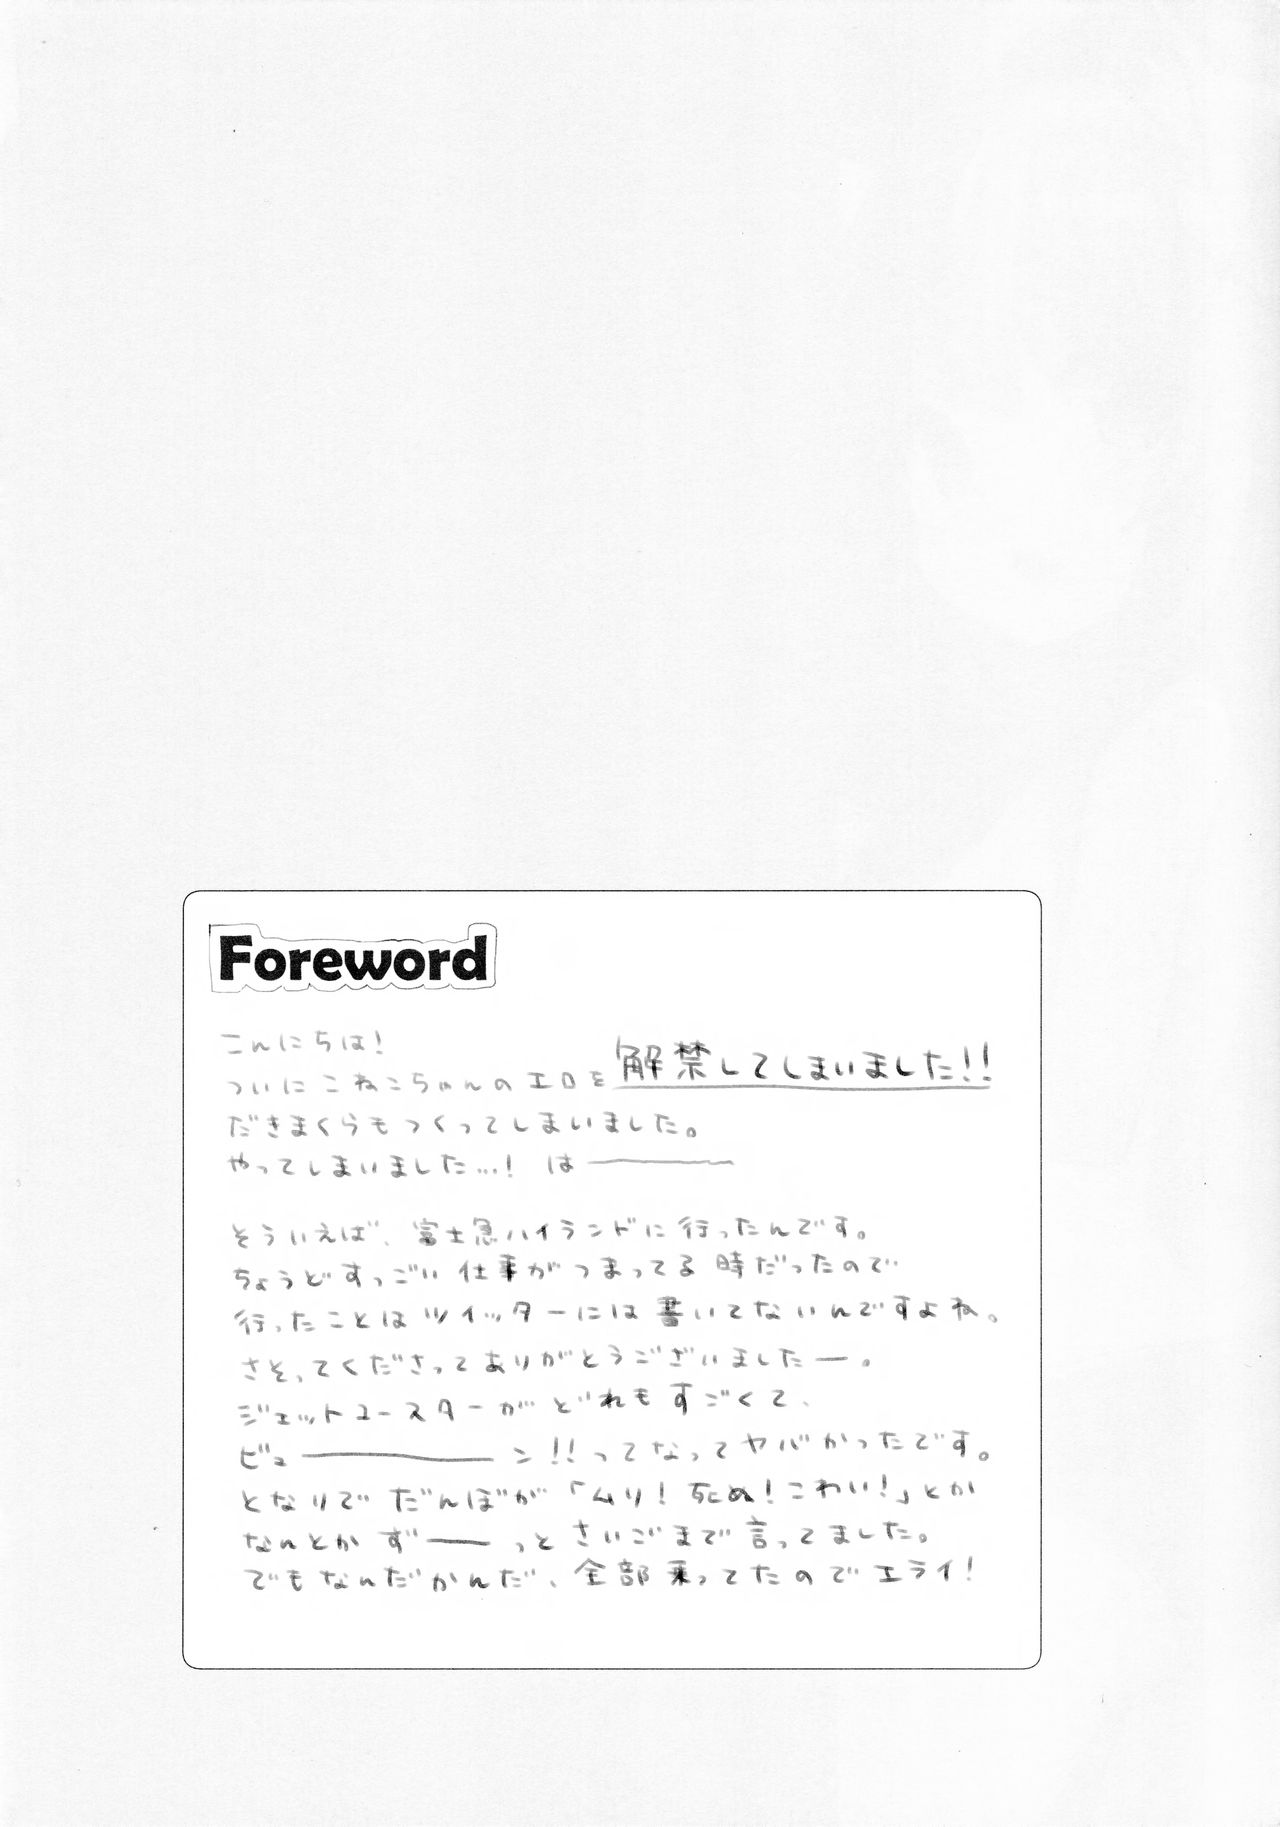 Foreword
こんにちは!
ついにこねこちゃんのエロを解禁してしまいました!!
だきまくらもつくってしまいました。
やってしまいました…! は———
そういえば、富士急ハイランドに行ったんです。
ちょうどすっごい仕事がつまってる時だったので
行ったことはツイッターには書いてないんですよね。
さそってくださってありがとうございましたー。
ジェットコースターがどれもすごくて、
ビュ————ン!!ってなってヤバかったです。
となりでだんぼが「ムリ!死ぬ!こわい!」とか
なんとかずーーっとさいごまで言ってました。
でもなんだかんだ、全部乗ってたのでエライ!